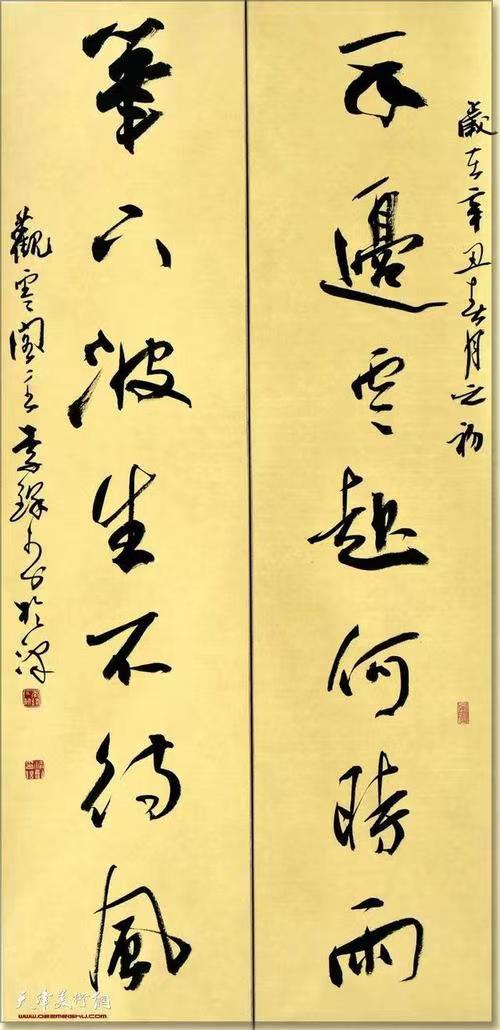 歲在辛丑春月之初
天邊雲起何時雨
筆下波生不待風
觀雲閣主李 於津
天津美術網
www.022meishu.com